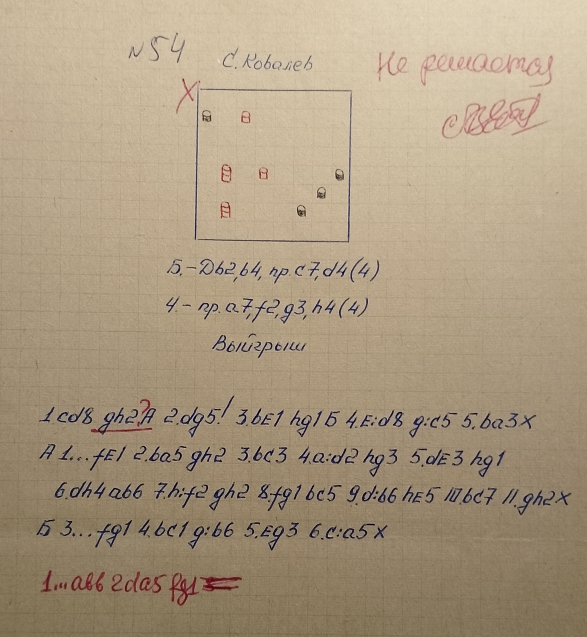 №54
С. Ковалев
Не решается
Х
Б.-Дb2,b4, пр.c7,d4(4)
Ч.- пр.a7,f2,g3,h4(4)
Выйгрыш
1.cd8 gh2?A 2.dg5! 3.bE1 hg1Б 4.E:d8 g:c5 5.ba3X
A 1...fE1 2.ba5 gh2 3.bc3 4.a:d2 hg3 5.dE3 hg1
6.dh4 ab6 7.h:f2 gh2 8.fg1 bc5 9.d:b6 hE5 10.bc7 11.gh2X
Б 3...fg1 4.bc1 g:b6 5.Eg3 6.c:a5X
1...ab6 2.da5 fg1=